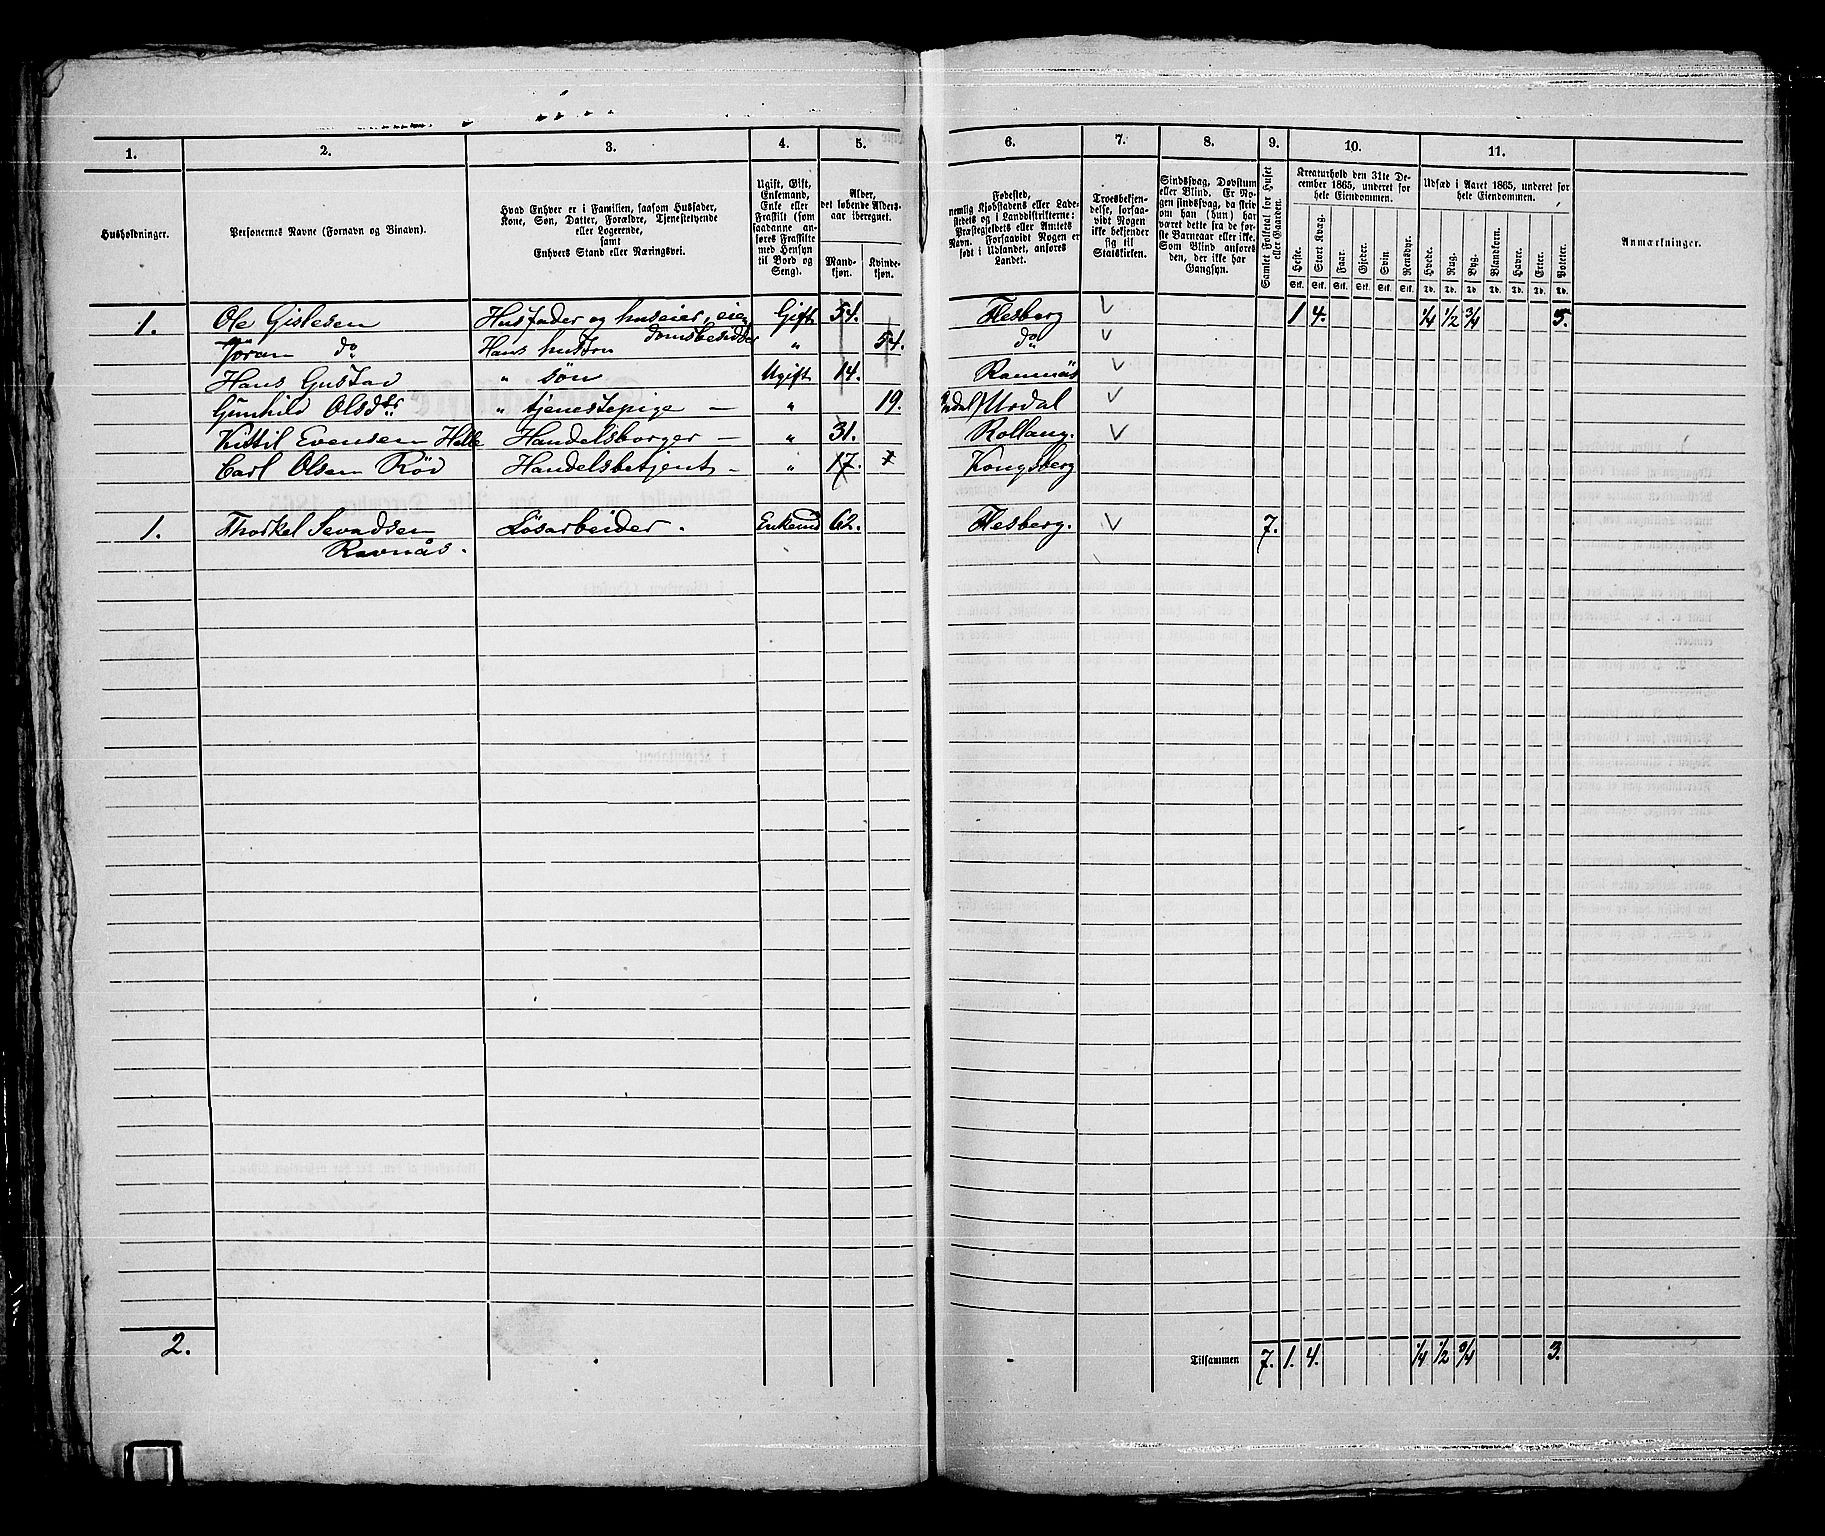 1. 2. 3. 4. 5. 6. 7. 8. 9. 10. 11.
Husholdninger.
Personernes Navne (Fornavn og Binavn).
Hvad Enhver er i Familien, saasom Husfader,
Kone, Søn, Datter, Forældre, Tjenestetyende
eller Logerende,
samt
Enhvers Stand eller Næringsvei.
Ugift, Gift,
Enkemand,
Enke eller
Fraskilt (som
saadanne an-
føres Fraskilte
med Hensyn
til Bord og
Seng).
Alder,
det løbende Alders-
aar iberegnet.
Mand-
kjøn.
Kvinde-
kjøn.
Fødested,
nemlig Kjøbstadens eller Lade-
stedets og i Landdistrikterne:
Præstegjeldets eller Amtets
Navn. Forsaavidt Nogen er
født i Udlandet, anføres
Landet.
Troesbekjen-
delse, forsaa-
vidt Nogen
ikke bekjender
sig til
Statskirken.
Sindssvag, Døvstum
eller Blind. Er No-
gen sindssvag, da skriv
om han (hun) har
været dette fra de før-
ste Barneaar eller ikke.
Som Blind anføres
den, der ikke har
Gangsyn.
Samlet Folketal for Huset
eller Gaarden.
Kreaturhold den 31te De-
cember 1865, underet for
hele Eiendommen.
Heste. Stort Kvæg. Faar. Gjeder. Svin Rensdyr.
Stk. Stk. Stk. Stk. Stk. Stk.
Udsæd i Aaret 1865, underet for
hele Eiendommen.
Hvede. Rug. Byg. Blandkorn. Havre. Erter. Poteter.
Td. Td. Td. Td. Td. Td. Td.
Anmærkninger.
1. Ole Gislesen Husfader og huseier, eien Gift 54. Flesberg 1 4. 1/4 1/2 3/4 5.
Jøran do Hans hustru domsbesidder " 54. do
Hans Gustav " søn Ugift 14. Ramnäs
Gunhild Olsdtr " tjenestepige — " 19. Urdal
Kittil Evensen Helle Handelsborger — " 31. Rollaug.
Carl Olsen Röd Handelsbetjent — " 17. Kongsberg
1. Thorkel Sevadsen Løsarbeider. Enkemd 62. Flesberg. 7.
Ravnås.
2. Tilsammen 7. 1. 4. 1/4 1/2 3/4 3.